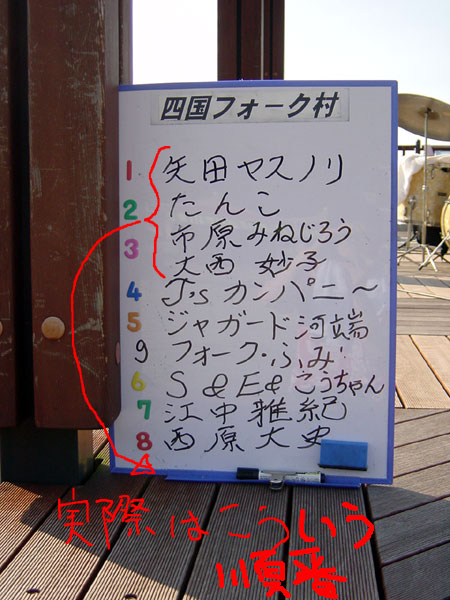 四国フォーク村
1 矢田ヤスノリ
2 たんこ
3 市原みねじろう
大西 妙子
4 J'sカンパニ〜
5 ジャガード河端
9 フォーク・ふみ
6 S&E&こうちゃん
7 江中雅紀
8 西原大史
実際はこういう
順番